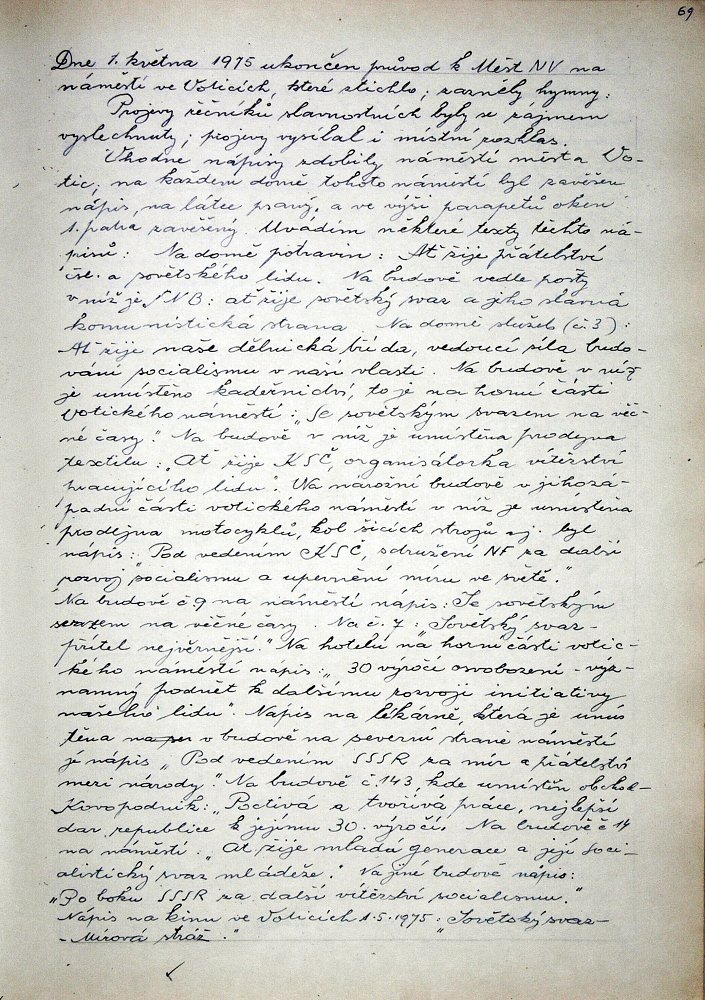 69
Dne 1. května 1975 ukončen průvod k Měst NV na
náměstí ve Voticích, které stichlo; zazněly hymny.
Projevy řečníků slavnostních byly se zájmem
vyslechnuty; projevy vysílal i místní rozhlas.
Vhodné nápisy zdobily náměstí města Vo-
tic; na každém domě tohoto náměstí byl zavěšen
nápis, na látce psaný, a ve výši parapetů oken
1. patra zavěšený. Uvádím některé texty těchto ná-
pisů: Na domě potravin: Ať žije přátelství
čsl. a sovětského lidu. Na budově vedle pošty
v níž je SNB: ať žije sovětský svaz a jeho slavná
komunistická strana. Na domě služeb (č. 3):
Ať žije naše dělnická třída, vedoucí síla budo-
vání socialismu v naší vlasti. Na budově v níž
je umístěno kadeřnictví, to je na horní části
votického náměstí: "Se sovětským svazem na věč-
né časy." Na budově v níž je umístěna prodejna
textilu: "Ať žije KSČ, organisátorka vítězství
pracujícího lidu". Na nárožní budově v jihozá-
padní části votického náměstí v níž je umístěna
prodejna motocyklů, kol šicích strojů aj. byl
nápis: "Pod vedením KSČ, sdružení NF za další
rozvoj socialismu a upevnění míru ve světě."
Na budově č. 9 na náměstí nápis: Se sovětským
svazem na věčné časy. Na č. 7: "Sovětský svaz-
přítel nejvěrnější." Na hotelu na horní části votic-
kého náměstí nápis: "30 výročí osvobození - výz-
namný podnět k dalšímu rozvoji initiativy
našeho lidu". Nápis na lékárně, která je umís
těna v budově na severní straně náměstí
je nápis "Pod vedením SSSR za mír a přátelství
mezi národy." Na budově č. 143, kde umístěn obchod-
Kovopodnik: "Poctivá a tvořivá práce, nejlepší
dar republice k jejímu 30. výročí. Na budově č 14
na náměstí: "Ať žije mladá generace a její soci-
alistický svaz mládeže." Na jiné budově nápis:
"Po boku SSSR za další vítězství socialismu."
Nápis na kinu ve Voticích 1.5.1975: "Sovětský svaz-
- Mírová stráž."